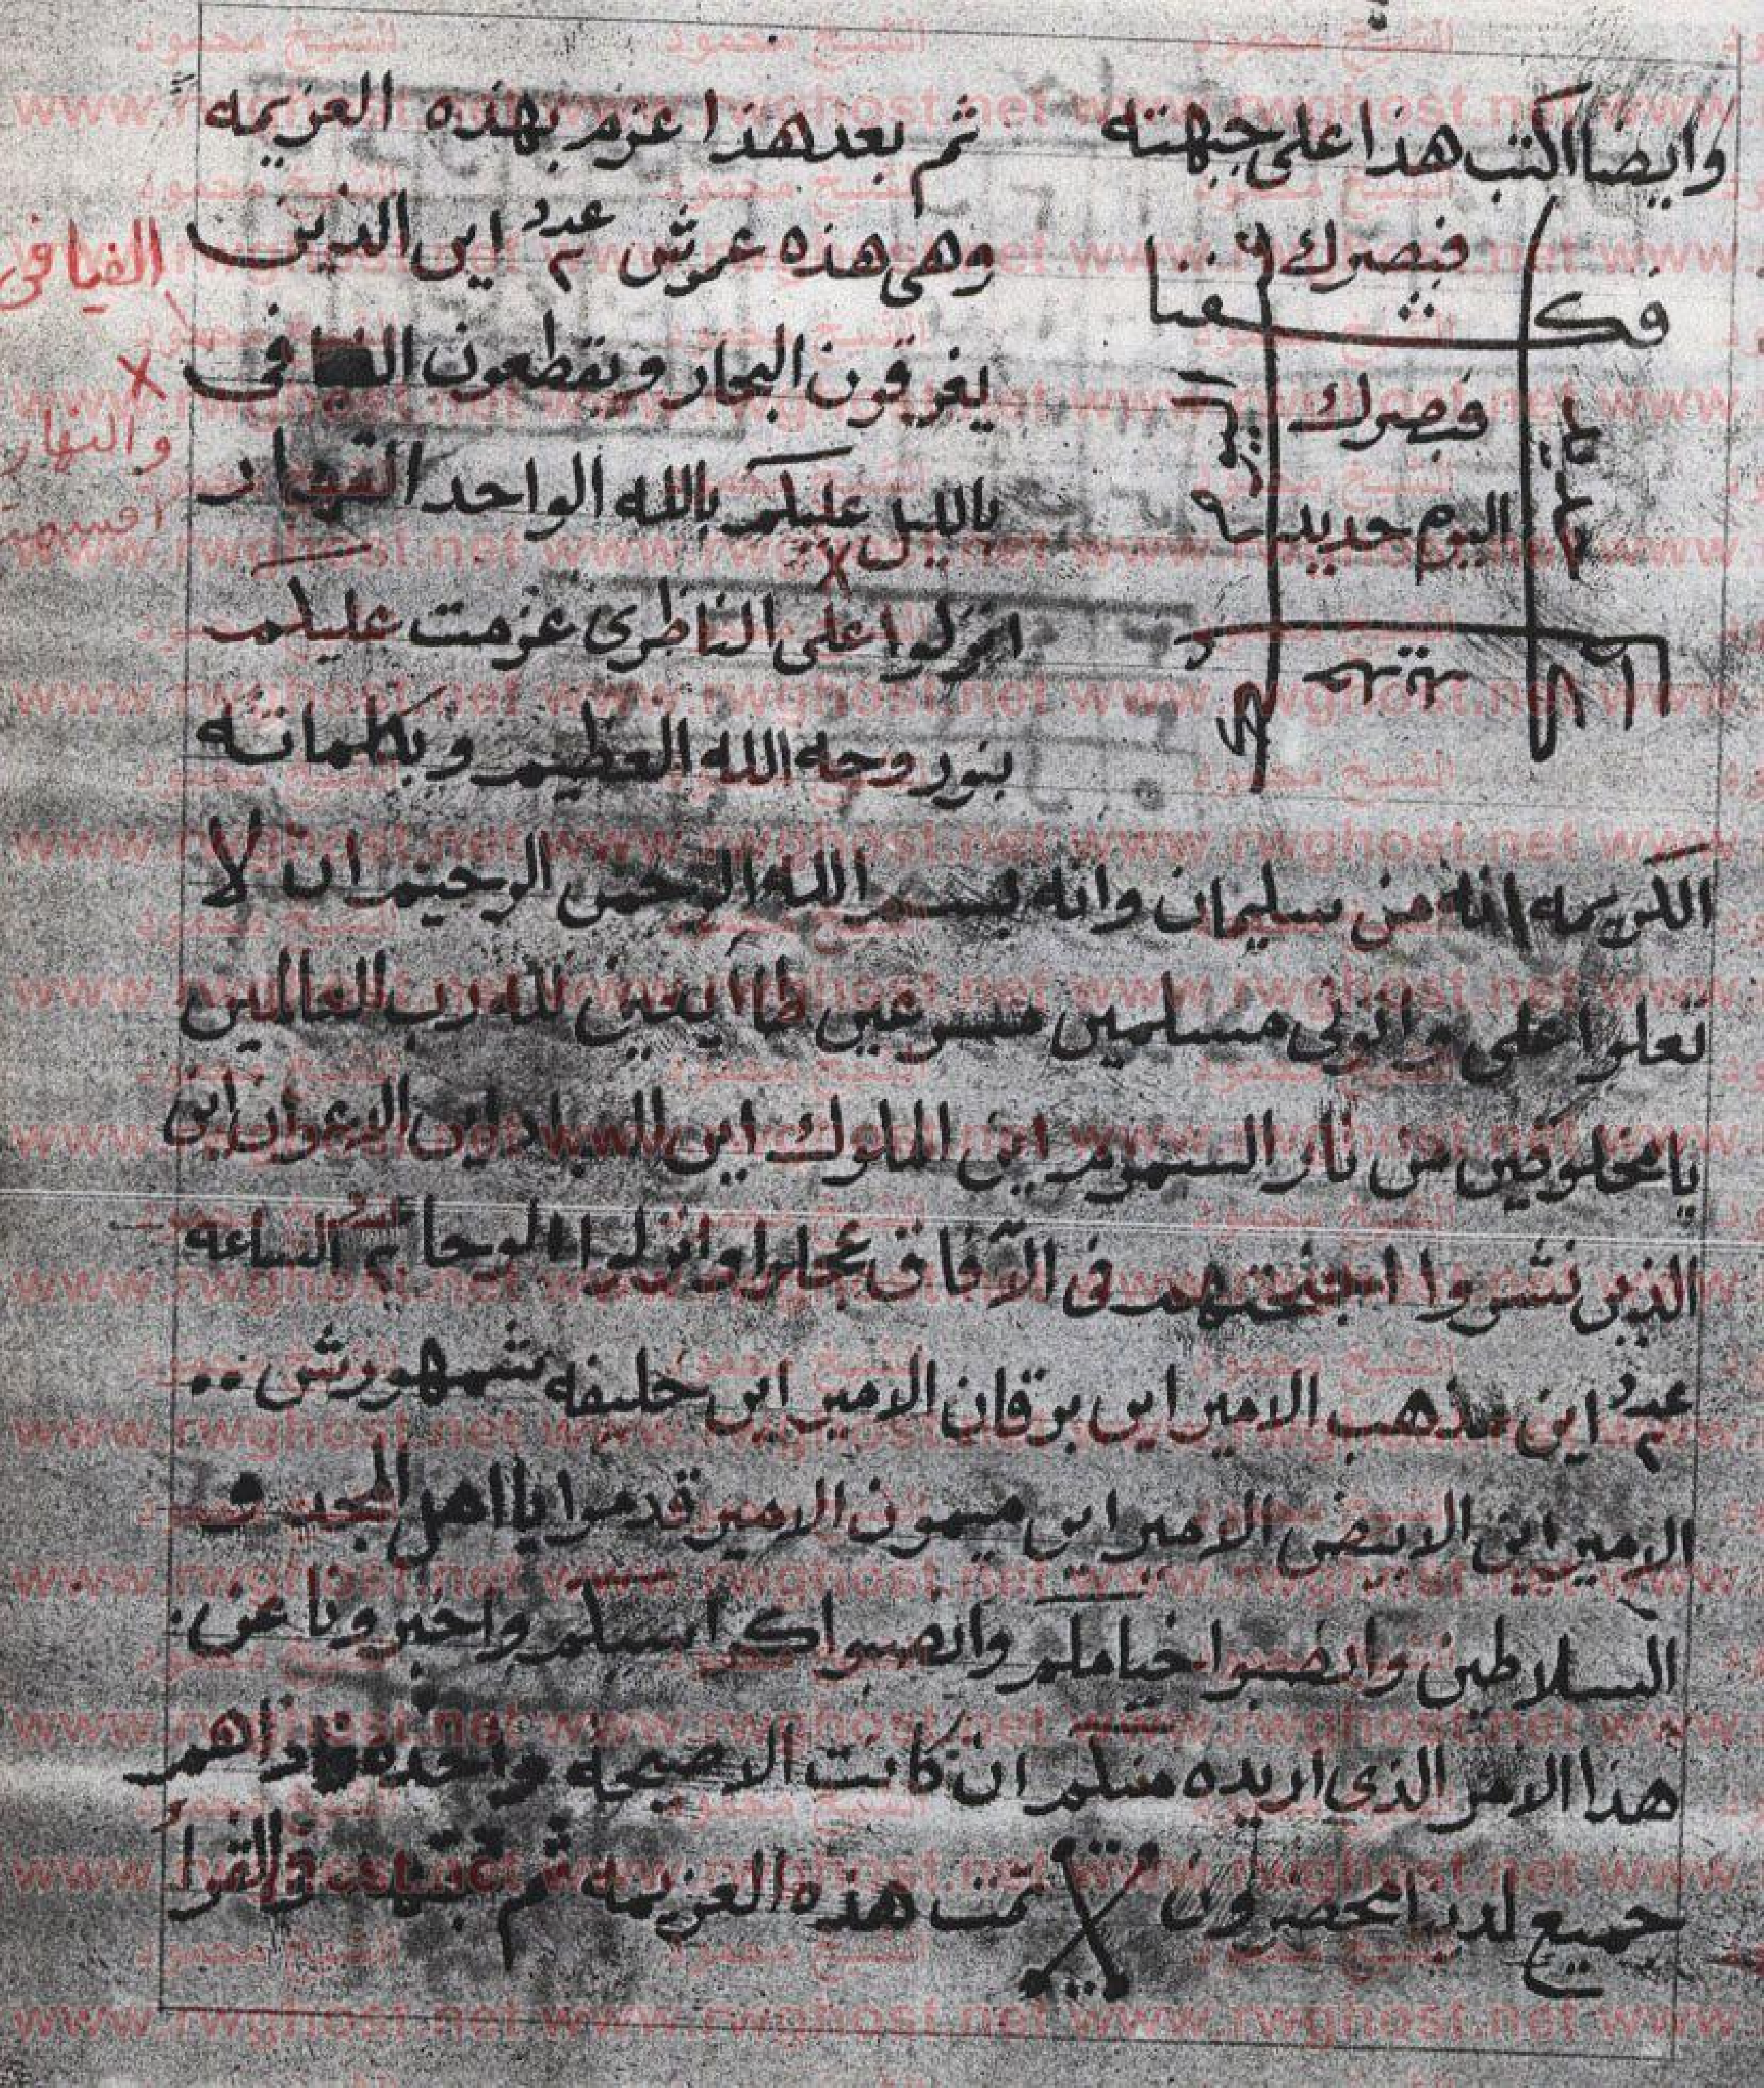 وايضا اكتب هذا على جبهته
ثم بعد هذا عزم بهذه العزيمه
وهى هذه عموش عدد ٢ اين الذين
يغرقون البحار ويقطعون الفيافى
بالليل عليكم بالله الواحد القهار
انزلوا على الناظرى عزمت عليكم
بنور وجه الله العظيم وبكلماته
فبصرك
فك شفنا
فبصرك
اليوم حديد
الفيافى
والنهار
اقسمت
الكريمه انه من سليمان وانه بسم الله الرحمن الرحيم ان لا
تعلوا على واتونى مسلمين مسرعين طاايعين لله رب العالمين
يا مخلوقين من نار السموم اين الملوك اين السياد اين الاعوان اين
الذين نشروا اجنحتهم فى الآفاق عجلوا وانزلوا الوحا ٢ الساعه
عدد ٢ اين مذهب الامير اين برقان الامير اين خليفه شمهورش ..
الامير اين الابيض الامير اين ميمون الامير قدموا يا اهل المجد و
السلاطين وانصبوا خيامكم وانصبوا كراسيكم واخبرونا عن .
هذا الامر الذى اريده منكم ان كانت الا صيحة واحده فاذاهم
جميع لدينا محضرون تمت هذه العزيمه ثم
www.rwghost.net
الشيخ محمود